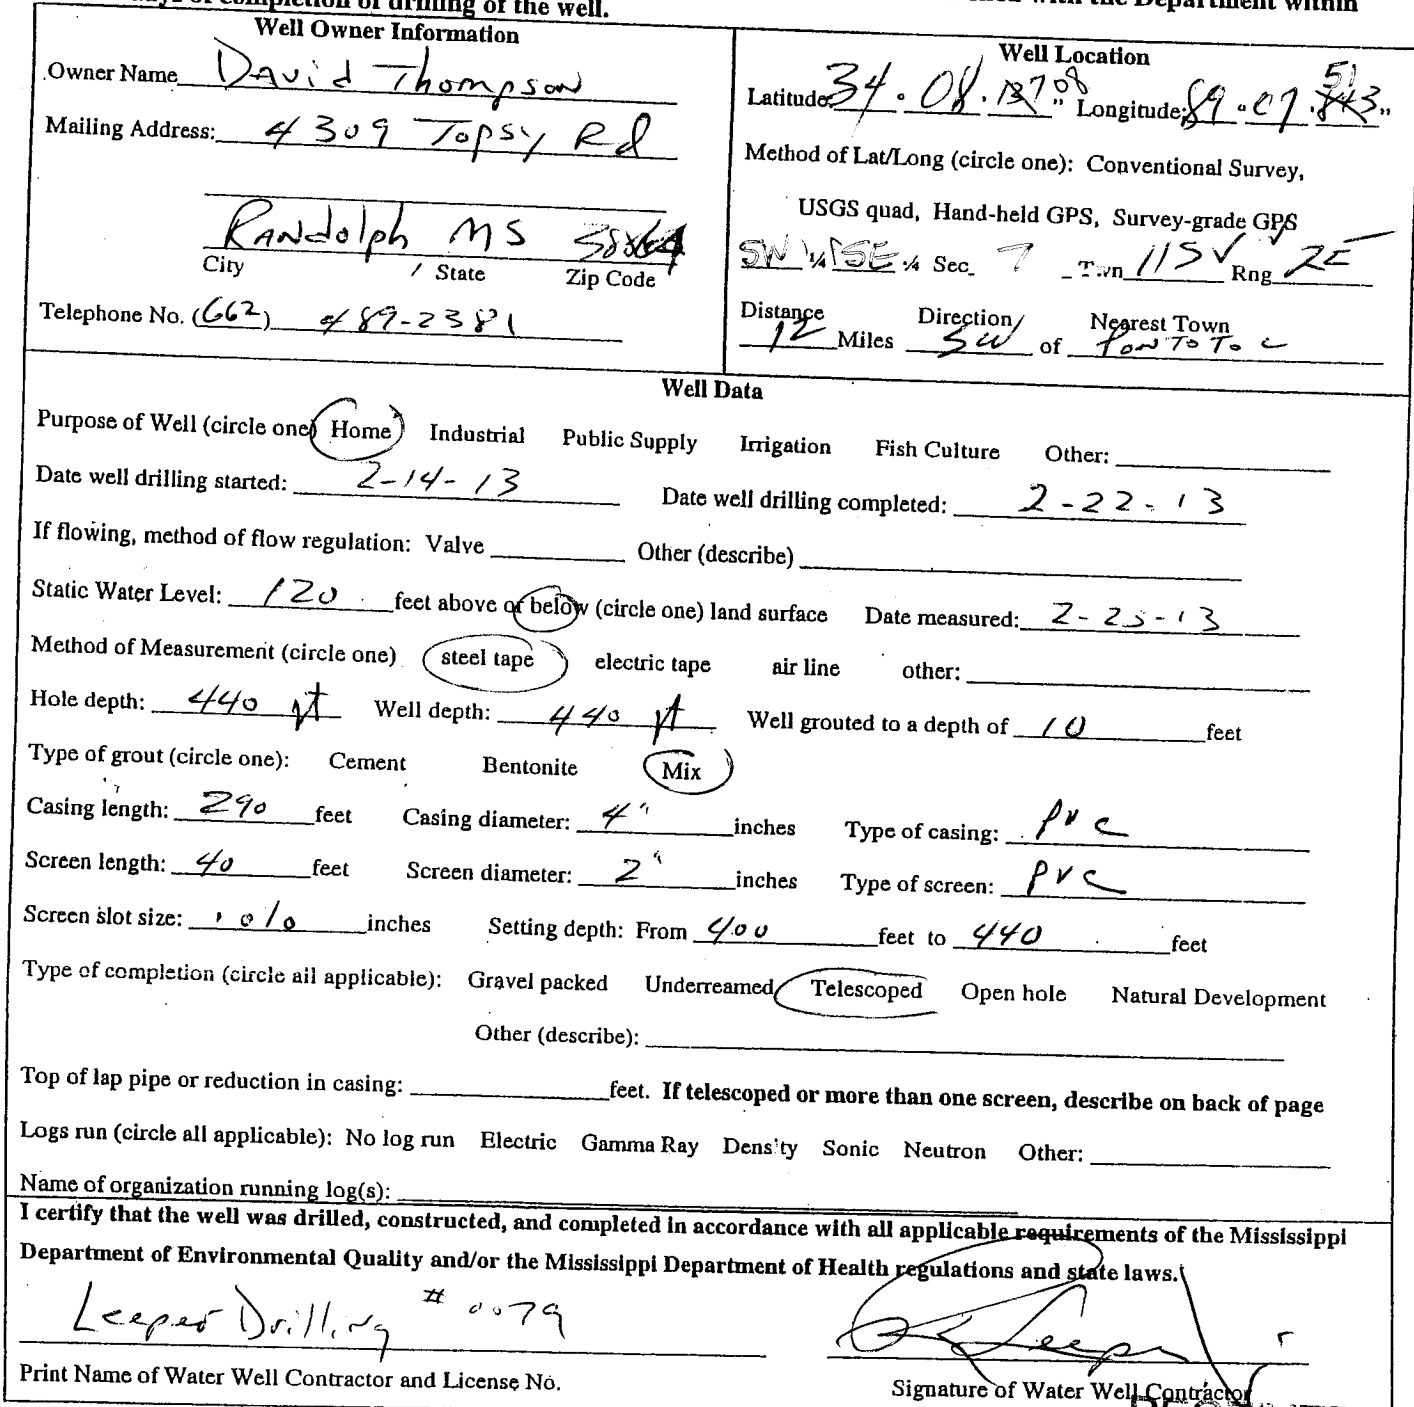 days of completion of drilling of the well. with the Department within
Well Owner Information
Owner Name David Thompson
Mailing Address: 4309 Topsy Rd
Randolph MS 38864
City State Zip Code
Telephone No. (662) 489-2381
Well Location
Latitude: 34. 08. 08" Longitude: 89. 07. 51"
Method of Lat/Long (circle one): Conventional Survey,
USGS quad, Hand-held GPS, Survey-grade GPS
SW ¼ SE ¼ Sec 7 Twn 11S Rng 2E
Distance Direction Nearest Town
12 Miles SW of PONTOTOC
Well Data
Purpose of Well (circle one) Home Industrial Public Supply Irrigation Fish Culture Other:
Date well drilling started: 2-14-13 Date well drilling completed: 2-22-13
If flowing, method of flow regulation: Valve Other (describe)
Static Water Level: 120 feet above or below (circle one) land surface Date measured: 2-25-13
Method of Measurement (circle one) steel tape electric tape air line other:
Hole depth: 440 ft Well depth: 440 ft Well grouted to a depth of 10 feet
Type of grout (circle one): Cement Bentonite Mix
Casing length: 290 feet Casing diameter: 4" inches Type of casing: PVC
Screen length: 40 feet Screen diameter: 2" inches Type of screen: PVC
Screen slot size: .010 inches Setting depth: From 400 feet to 440 feet
Type of completion (circle all applicable): Gravel packed Underreamed Telescoped Open hole Natural Development
Other (describe):
Top of lap pipe or reduction in casing: feet. If telescoped or more than one screen, describe on back of page
Logs run (circle all applicable): No log run Electric Gamma Ray Density Sonic Neutron Other:
Name of organization running log(s):
I certify that the well was drilled, constructed, and completed in accordance with all applicable requirements of the Mississippi
Department of Environmental Quality and/or the Mississippi Department of Health regulations and state laws.
Leeper Drilling # 0079
Print Name of Water Well Contractor and License No.
Signature of Water Well Contractor